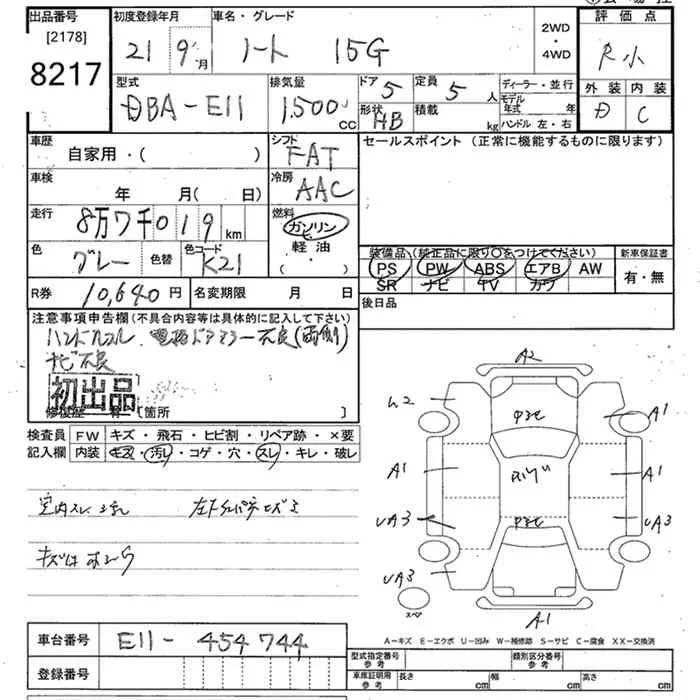 出品番号
[2178]
8217
初度登録年月
21 9月
車名・グレード
ノート 15G
2WD
・
4WD
評価点
R小
外装 内装
D C
型式
DBA-E11
排気量
1,500 CC
ドア 5
形状 HB
定員 5 人
積載 kg
ディーラー・並行
モデル年式 年
ハンドル 左・右
車歴
自家用・( )
シフト
FAT
セールスポイント (正常に機能するものに限ります)
車検
年 月( 日)
冷房
AAC
走行
8万7千019 km
燃料
ガソリン
軽油
( ・ )
色
グレー
色替
色コード
K21
装備品(純正品に限り〇をつけてください)
PS PW ABS エアB AW
SR ナビ TV カワ
新車保証書
有・無
R券 10,640円
名変期限 月 日
後日品
注意事項申告欄(不具合内容等は具体的に記入して下さい)
電格ドアミラー不良(両側)
ナビ不良
初出品
修復歴 有 [箇所 ]
検査員記入欄
FW キズ・飛石・ヒビ割・リペア跡・×要
内装 キズ・汚れ・コゲ・穴・スレ・キレ・破レ
室内スレ
A2
A1
A1
A1
UA3
UA3
UA3
A1
スペア
A-キズ E-エクボ U-凹み W-補修跡 S-サビ C-腐食 XX-交換済
車台番号 E11-454744
登録番号
型式指定番号 参考
類別区分番号 参考
車庫証明用 参考
長さ cm
幅 cm
高さ cm